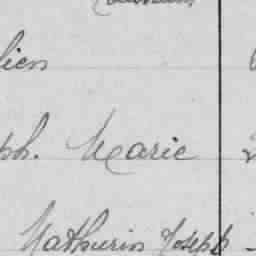 lien
ph. Marie
Mathurin Joseph